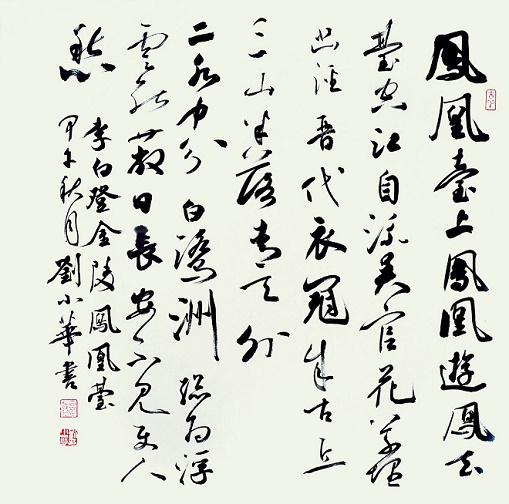 鳳凰臺上鳳凰遊鳳去
臺空江自流吳宮花草埋
幽徑晉代衣冠成古丘
三山半落青天外
二水中分白鷺洲總為浮
雲能蔽日長安不見使人
愁
李白登金陵鳳凰臺
甲午秋月劉小華書